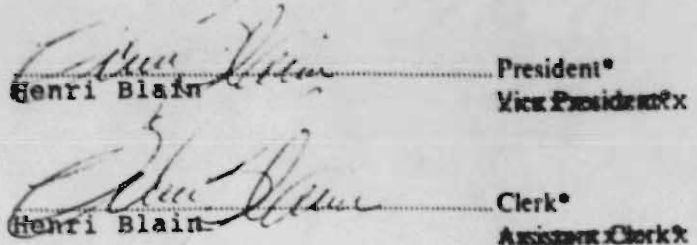 Henri Blain President*
Vice President*
Henri Blain Clerk*
Assistant Clerk*